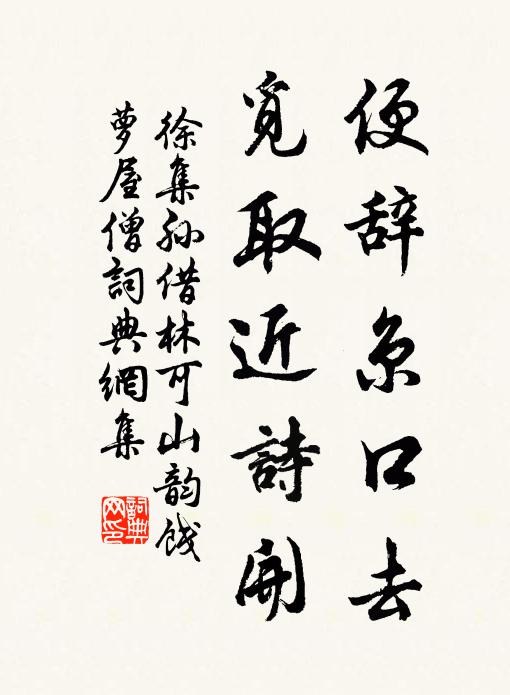 便辞京口去
覓取近詩開
徐集孙借林可山韵餞
夢屋僧詞典網集
詞典
网印